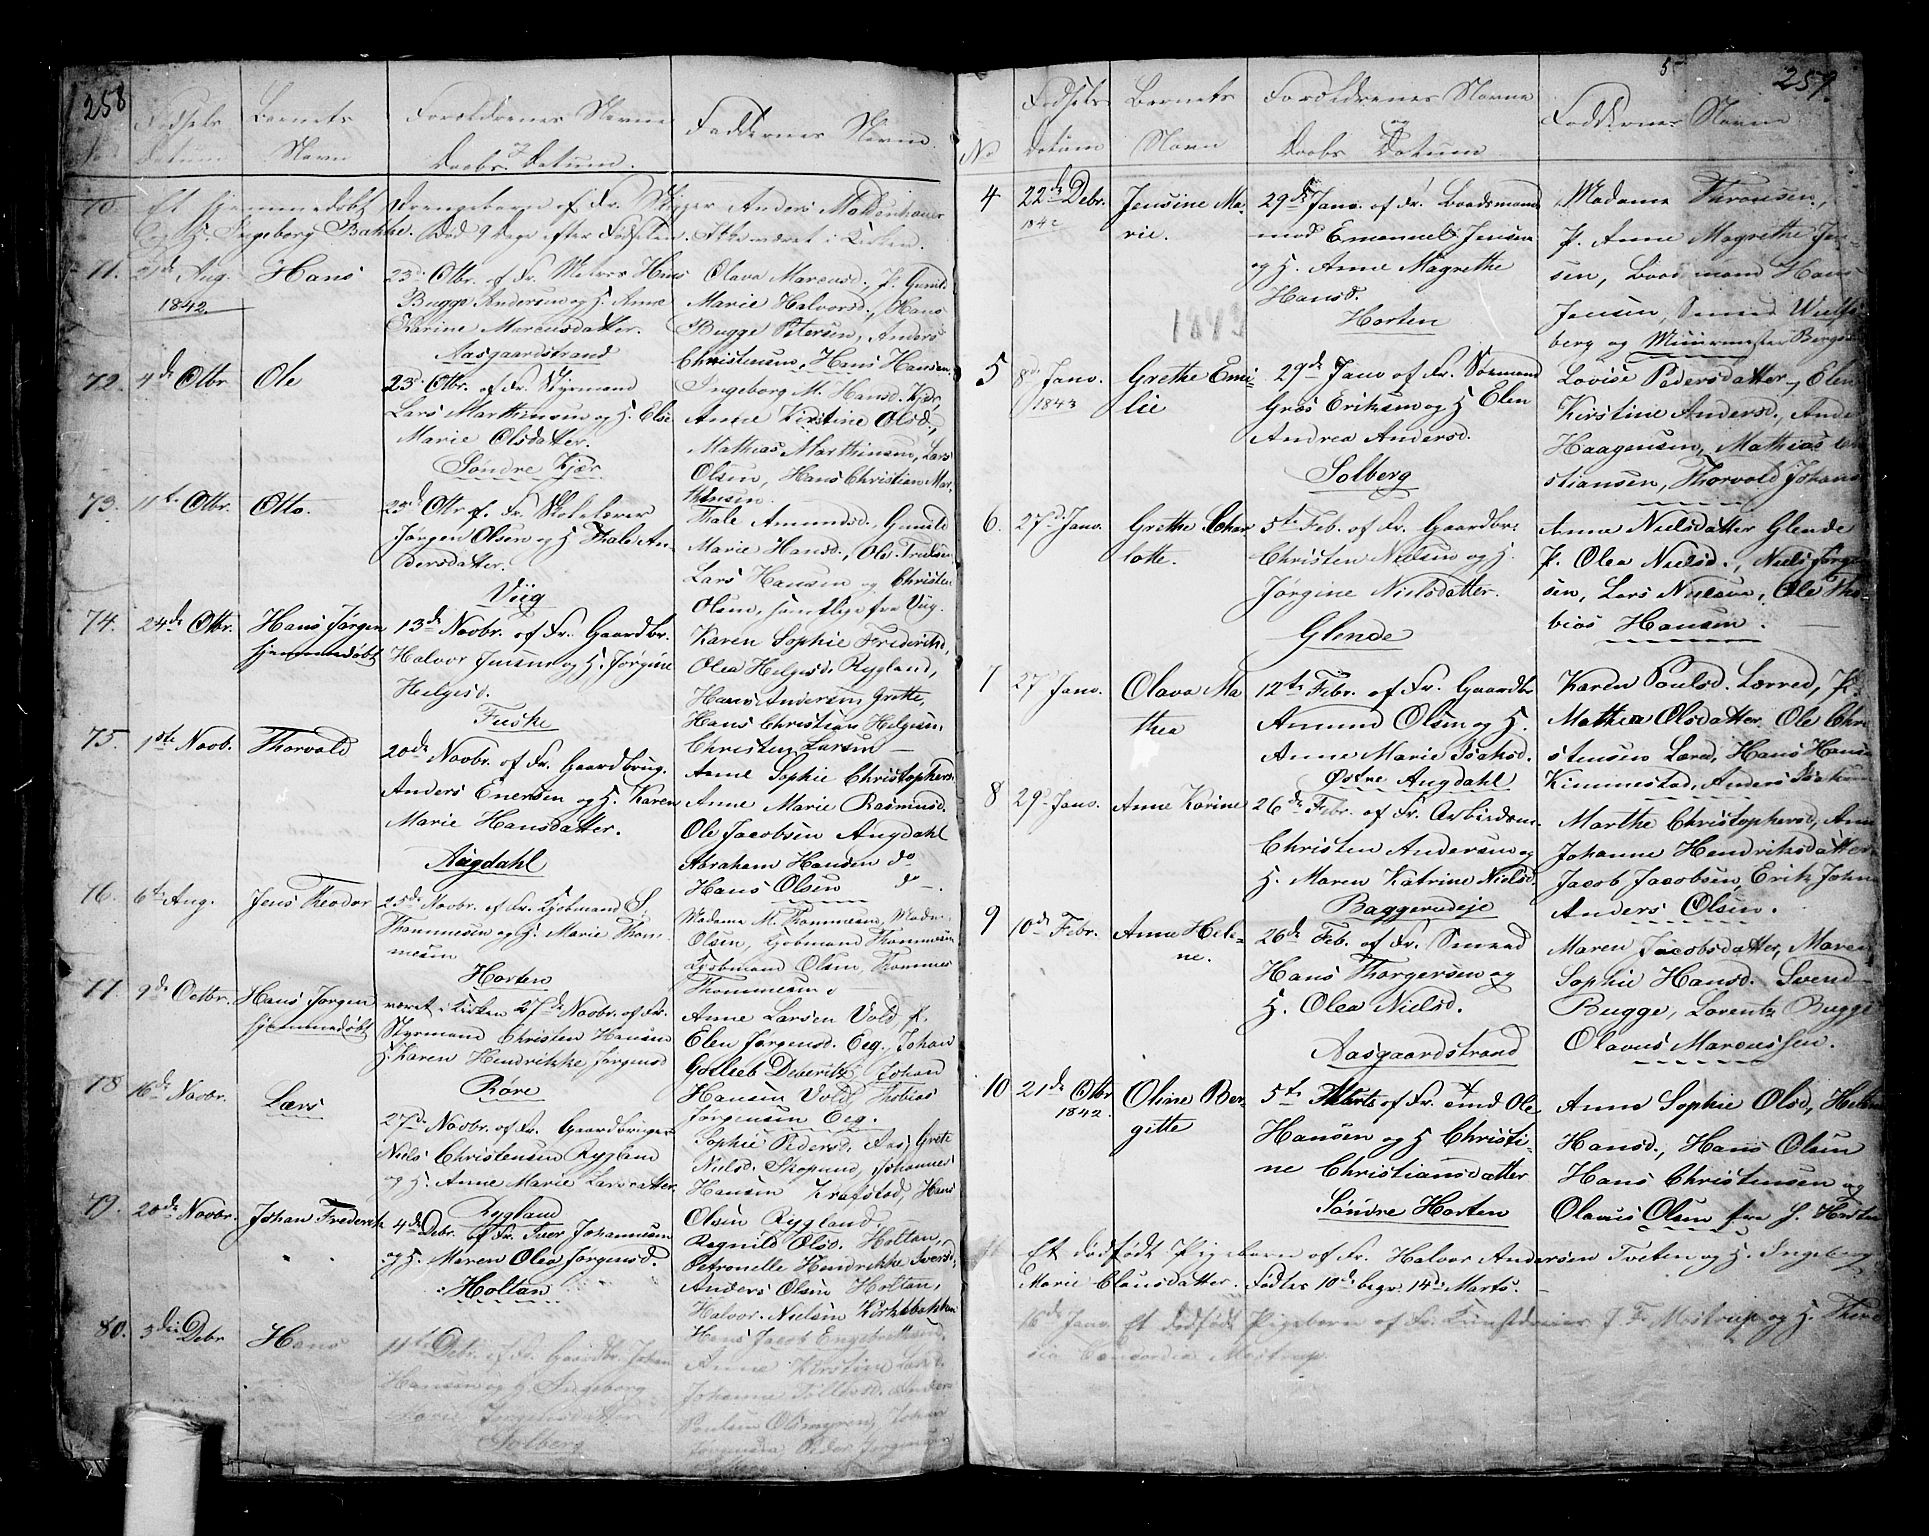 258
Fødsels Datum
Barnets Navn
Forældrenes Navne og Daabs Datum.
Faddernes Navne.
70. Et hjemmedøbt Drengebarn af Fr. Skipper Anders Moldenhauer
og H. Ingeborg Bakke. Død 9 Dage efter Fødselen. Ikke været i Kirken.
71. Aug. 1842
Hans
23d Otbr. af Fr. Hans
Bugge Andersen og H. Anne
Karine Marcusdatter.
Aasgaardstrand
Olava Marcusd., J. Gunild
Marie Halvorsd., Hans
Bugge Petersen, Anders
Christensen, Hans Hansen
72. 4de Otbr
Ole
23d Otbr. af Fr. Styrmand
Lars Marthinsen og H. Else
Marie Olsdatter.
Søndre Kjær
Ingeborg M. Hansd. Kjær,
Anne Kirstine Olsd.,
Mathias Marthinsen, Lars
Olsen, Hans Christian Mar-
thinsen.
73. 11te Otbr.
Otto.
23d Otbr af Fr. Skolelærer
Jørgen Olsen og H Thale An-
dersdatter.
Viig
Thale Amundsd., Gunild
Marie Hansd., Ole Truelsen
Lars Hansen og Christen
Olsen, samtlige fra Viig.
74. 24de Otbr.
Hans Jørgen
hjemmedøbt
13de Novbr. af Fr. Gaardbr.
Halvor Jensen og H. Jørgine
Helgesd.
Karen Sophie Frederiksd,
Olea Helgesd. Rygland,
Hans Andersen Grette,
Hans Christian Helgesen
Christen Larsen
75. 1ste Novb.
Thorvald
20de Novbr. af Fr. Gaardbrug.
Anders Enersen og H. Karen
Marie Hansdatter.
Augdahl
Anne Sophie Christophers.
Anne Marie Rasmusd.
Ole Jacobsen Augdahl
Abraham Hansen do
Hans Olsen do
76. 6te Aug.
Jens Theodor
25de Novbr. af Fr. Kjøbmand S.
Thommesen og H. Marie Thom-
mesen
Horten
Madame M. Thommesen, Madm.
Olsen, Kjøbmand Thommesen
Kjøbmand Olsen, Thommes
Thommesen
77. 9de Octbr.
Hans Jørgen
hjemmedøbt
været i Kirken 27de Novbr. af Fr.
Styrmand Christen Hansen
H. Karen Hendrikke Jørgensd
Røre
Anne Larsen Vold, J.
Elen Jørgensd. Eeg, Johan
Gotlieb Deberitz, Johan
Hansen Vold, Tobias
Jørgensen Eeg.
78 16de Novbr.
Lars
27de Novbr. af Fr. Gaardbruger
Niels Christensen Rygland
og H. Anne Marie Larsdatter.
Rygland
Sophie Pedersd. Aas, Grete
Nielsd. Skopund, Johannes
Hansen Krafstad, Hans
Olsen Rygland.
79. 20de Novbr.
Johan Frederik
4de Debr. af Fr. Iver Johannesen
og H. Maren Olea Jørgensd.
Holtan
Ragnild Olsd. Holtan,
Petronelle Hendrikke Iversd.,
Anders Olsen Holtan,
Halvor Nielsen Kirkebakken
80. 3die Debr
Hans
11te Debr. af Fr. Gaardbr. Johan
Hansen og H Ingeborg
Marie Jørgensdatter
Solberg
Hans Jacob Engebretsen
Anne Kirstine Larsd.
Johanne Tillesd. Anders
Poulsen Olsmyren, Johan
Jørgensen, Peder Jørgensen
Solberg
5
259.
No
Fødsels Datum
Barnets Navn
Forældrenes Navne og Daabs Datum
Faddernes Navne
4 22de Debr. 1842
Jensine Ma-
rie.
29de Janv. af Fr. Baadsmand
Emanuel Jensen
og H. Anne Magrethe
Hansd.
Horten
Madame Thronsen,
J. Anne Magrethe Jen-
sen, Baadsmand Hans
Jensen, Wulfs-
berg og Muurmester Berge
1843
5 8de Janv. 1843
Grethe Emi-
lie
29de Janv af Fr. Sømand
Groos Eriksen og H Elen
Andrea Andersd.
Solberg
Lovise Pedersdatter, Elen
Kirstine Andersd., Anders
Haagensen, Mathias Chri-
stiansen, Thorvald Johans
6. 27de Janv.
Grethe Char
lotte.
5te Feb. af Fr. Gaardbr.
Christen Nielsen og H.
Jørgine Nielsdatter.
Glende
Anne Nielsdatter Glende
J. Olea Nielsd., Niels Jørgen
sen, Lars Nielsen, Ole Tho-
bias Hansen.
7 27de Janv.
Olava Ma
thea
12te Febr. af Fr. Gaardbr
Amund Olsen og H.
Anne Marie Isaksd.
Østre Augdahl
Karen Poulsd. Lærred, J.
Mathea Olsdatter, Ole Chri
stensen Lærd, Hans Hans
Kimmestad, Anders Isaksen
8 29de Janv.
Anne Karine
26de Febr. af Fr. Arbeidsm.
Christen Andersen og
H. Maren Katrine Nielsd.
Baggerødeje
Marthe Christophersd, Anne
Johanne Hendriksdatter
Jacob Jacobsen, Erik Johns
Anders Olsen.
9 10de Febr.
Anne Hele-
ne.
26de Feb. af Fr. Sømand
Hans Thorgersen og
H. Olea Nielsd.
Aasgaardstrand
Maren Jacobsdatter, Maren
Sophie Hansd. Svend
Bugge, Lorentz Bugge
Olavus Marcussen.
10 21de Otbr 1842.
Oline Ber-
gitte
5te Marts af Fr. Smd Ole
Hansen og H Christi-
ne Christiansdatter
Søndre Horten
Anne Sophie Olsd, Helene
Hansd., Hans Olsen
Hans Christensen og
Olavus Olsen fra S. Horten
11 Et dødfødt Pigebarn af Fr. Halvor Andersen Tveten og H. Ingeborg
Marie Clausdatter. Fødtes 10de begr. 14de Marts.
16de Janv. Et dødfødt Pigebarn af Fr. F. Møstrup og H. There
sia Concordia Møstrup.